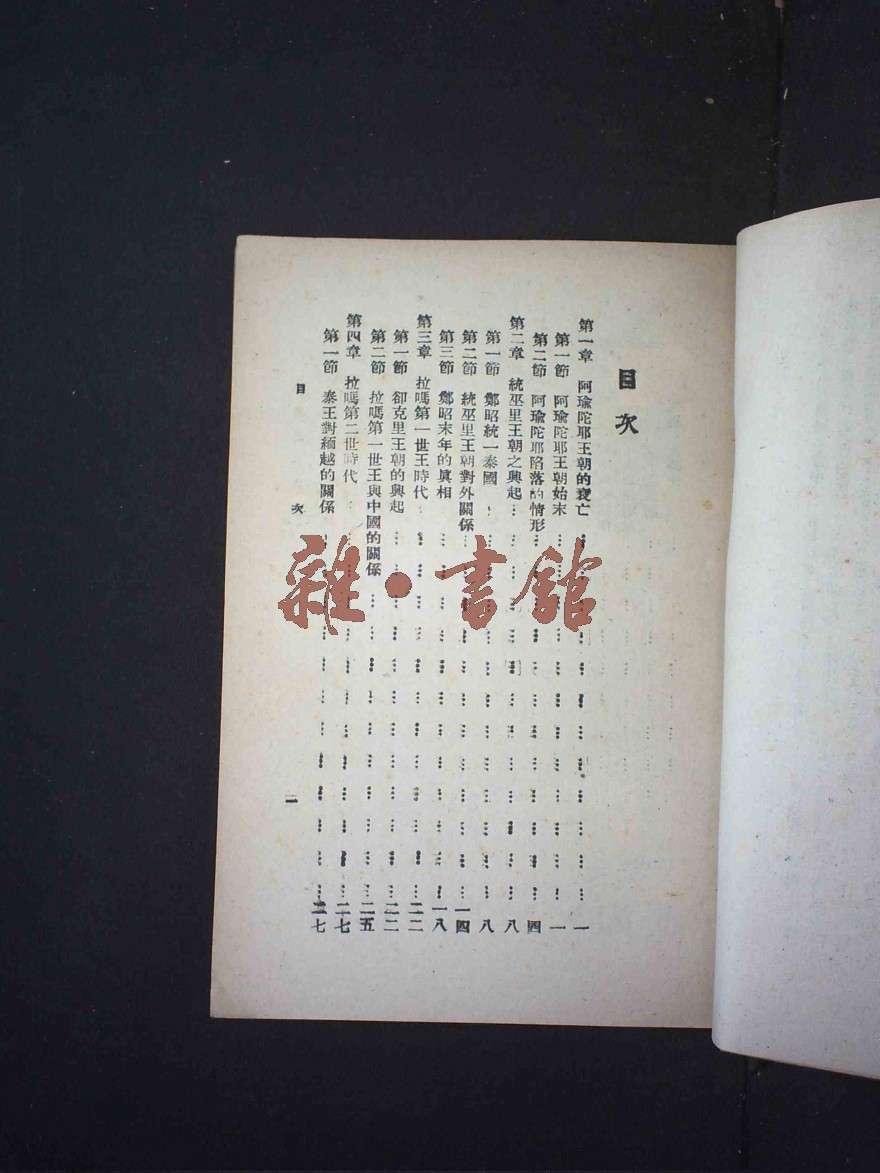 目次
第一章 阿瑜陀耶王朝的衰亡 一
第一節 阿瑜陀耶王朝始末 一
第二節 阿瑜陀耶陷落的情形 四
第二章 統巫里王朝之興起 八
第一節 鄭昭統一泰國 八
第二節 統巫里王朝對外關係 一四
第三節 鄭昭末年的眞相 一八
第三章 拉嗎第一世王時代 二二
第一節 卻克里王朝的興起 二二
第二節 拉嗎第一世王與中國的關係 二五
第四章 拉嗎第二世時代 二七
第一節 泰王對緬越的關係 二七
目次
雜·書館